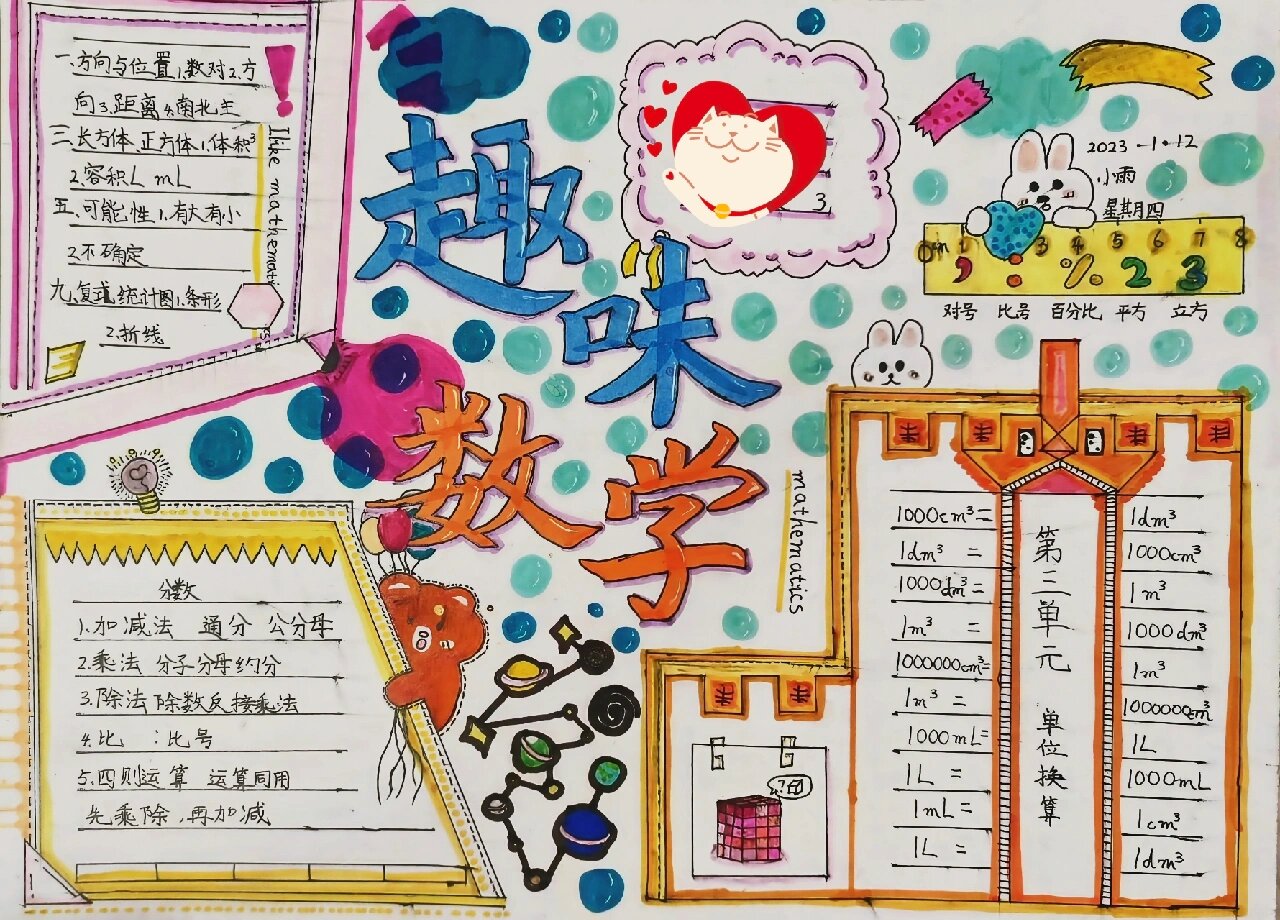 一、方向与位置 1.数对 2.方
向 3.距离 4.南北主
三、长方体、正方体 1.体积³
2.容积L mL
五、可能性 1.有大有小
2.不确定
九、复式统计图 1.条形
2.折线
I like mathematics
趣味
数学
mathematics
3
2023-1·12
小雨
星期四
0cm 1 3 4 5 6 7 8
, : % 2 3
对号 比号 百分比 平方 立方
分数
1.加减法 通分 公分母
2.乘法 分子分母约分
3.除法 除数反接乘法
4.比 :比号
5.四则运算 运算同用
先乘除,再加减
第三单元 单位换算
1000cm³= 1dm³
1dm³ = 1000cm³
1000dm³= 1m³
1m³ = 1000dm³
1000000cm³= 1m³
1m³ = 1000000cm³
1000mL= 1L
1L = 1000mL
1mL= 1cm³
1L = 1dm³